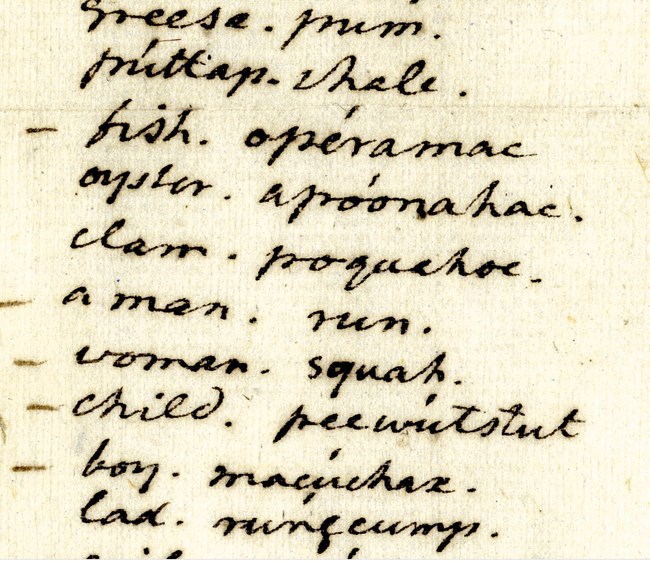 greese. pum.
púttap. whale.
– fish. opéramac
oyster. apróonahac.
clam. poquahoc.
– a man. run.
– woman. squah.
– child. peewútstut
– boy. macúchax.
lad. rúngcump.